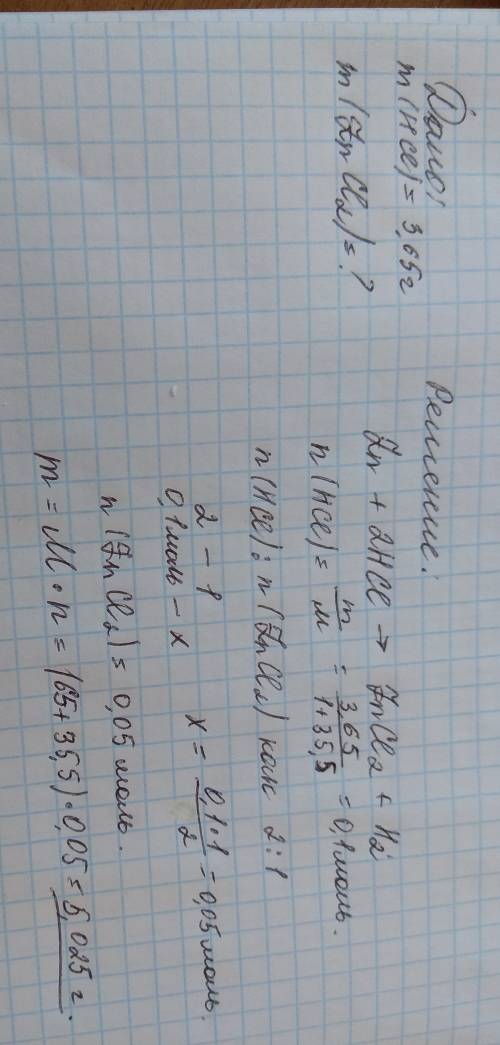 Дано:
m(HCl) = 3,65г
m(ZnCl₂) = ?
Решение:
Zn + 2HCl → ZnCl₂ + H₂
n(HCl) = m/M = 3,65/1+35,5 = 0,1 моль.
n(HCl) : n(ZnCl₂) как 2:1
2 – 1
0,1 моль – x x = 0,1·1/2 = 0,05 моль.
n(ZnCl₂) = 0,05 моль.
m = M · n = (65+35,5)·0,05 = 5,025 г.